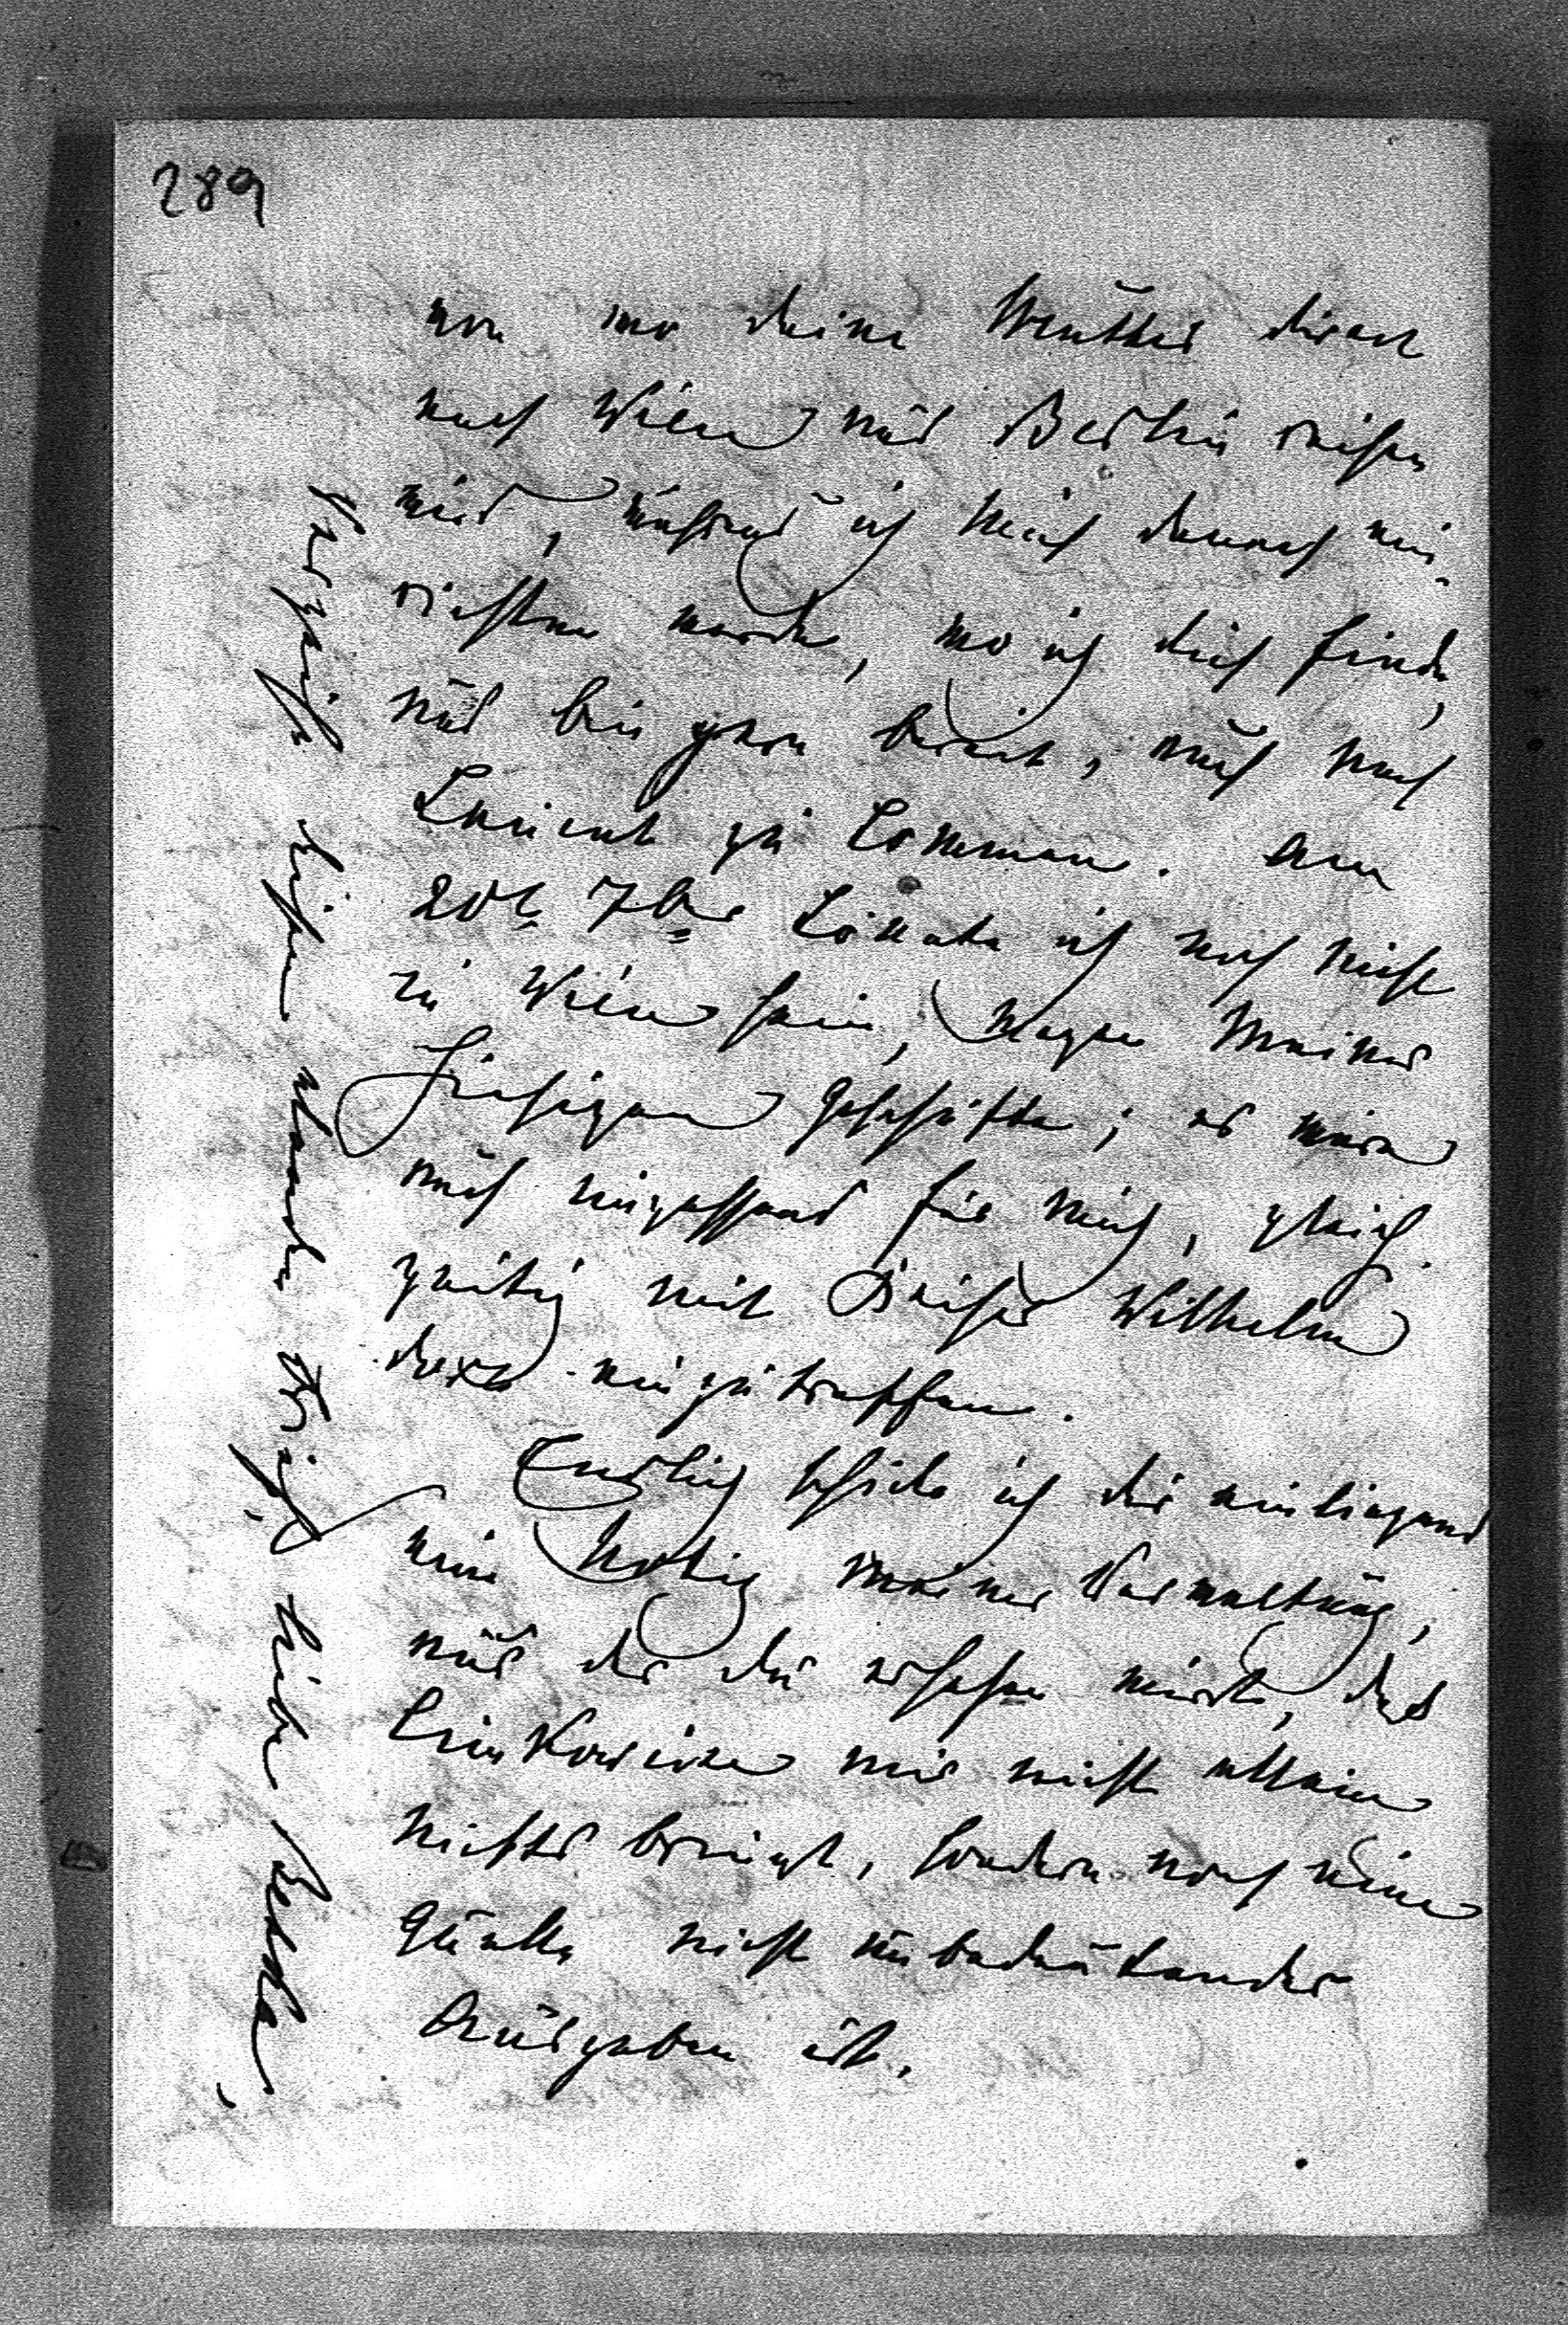 289
von wo deine Mutter direct
nach Wien und Berlin reisen
wird, während ich mich danach ein-
richten werde, wo ich dich finde,
und bin gern bereit, auch nach
Lorient zu kommen. Am
20t 7ber könnte ich noch nicht
in Wien sein, wegen meiner
hiesigen Geschäfte; es wäre
auch unpassend für mich, gleich-
zeitig mit Kaiser Wilhelm
dort einzutreffen.
Endlich schicke ich dir einliegend
eine Notiz meiner Verwaltung,
aus der du ersehen wirst, daß
mir nicht allein
nichts bringt, sondern noch eine
Quelle nicht unbedeutender
Ausgaben ist.
Verzeihe diesen